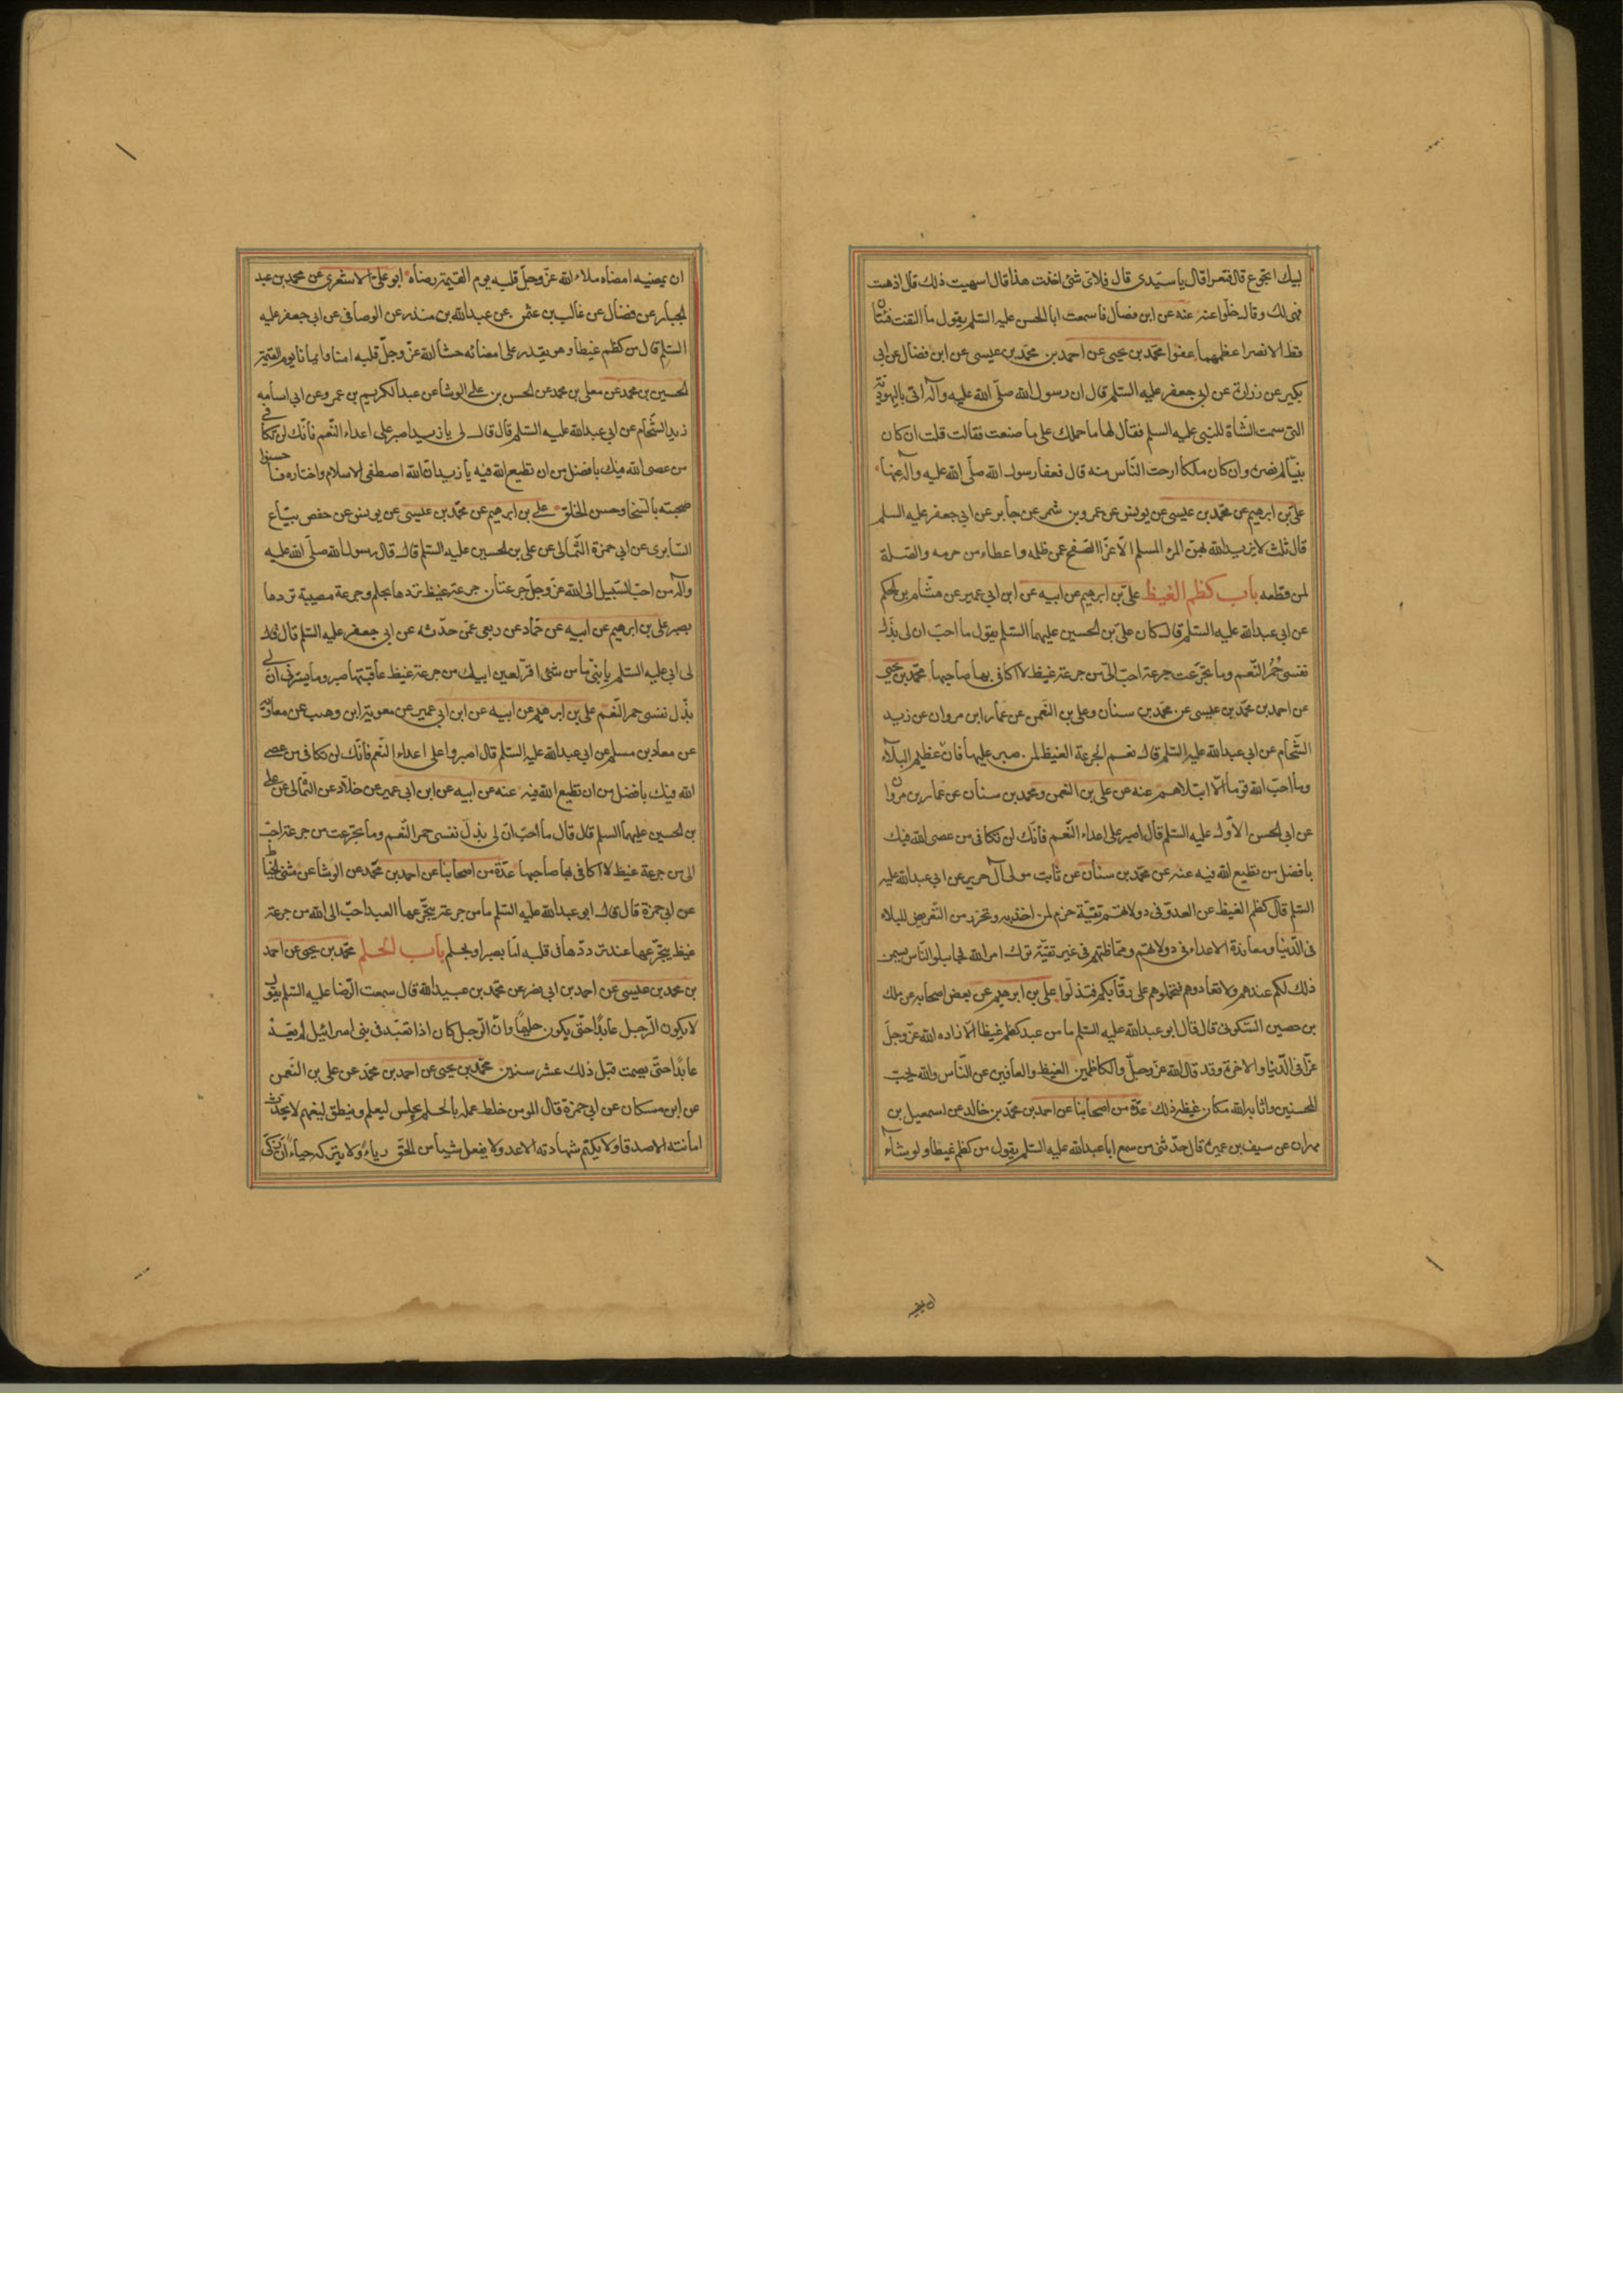 لبيك اتجوع قال فتعرا قال يا سيدى قال فلاى شئ اخذت هذا قال اشتهيت ذلك قال اذهب
فهى لك وقال خلوا عنه عنه عن ابن فضال قال سمعت ابا الحسن عليه السلم يقول ما التقت فئتان
قط الا نصر اعظمهما عفوا محمد بن يحيى عن احمد بن محمد بن عيسى عن ابن فضال عن ابى
بكير عن زرارة عن ابى جعفر عليه السلم قال ان رسول الله صلى الله عليه وآله اتى باليهودية
التى سمت الشاة للنبى عليه السلم فقال لها ما حملك على ما صنعت فقالت قلت ان كان
نبيا لم يضره وان كان ملكا ارحت الناس منه قال فعفا رسول الله صلى الله عليه وآله عنها
على بن ابرهيم عن محمد بن عيسى عن يونس عن عمرو بن شمر عن جابر عن ابى جعفر عليه السلم
قال ثلث لا يزيد الله بهن المرء المسلم الا عزا الصفح عمن ظلمه واعطاء من حرمه والصلة
لمن قطعه باب كظم الغيظ على بن ابرهيم عن ابيه عن ابن ابى عمير عن هشام بن الحكم
عن ابى عبد الله عليه السلم قال كان على بن الحسين عليهما السلم يقول ما احب ان لى بذل
نفسى حمر النعم وما تجرعت جرعة احب الى من جرعة غيظ لا اكافى بها صاحبها محمد بن يحيى
عن احمد بن محمد بن عيسى عن محمد بن سنان وعلى بن النعمن عن عمار ابن مروان عن زيد
الشحام عن ابى عبد الله عليه السلم قال نعم الجرعة الغيظ لمن صبر عليها فان عظيم البلاء
وما احب الله قوما الا ابتلاهم عنه عن على بن النعمن ومحمد بن سنان عن عمار بن مروان
عن ابى الحسن الاول عليه السلم قال اصبر على اعداء النعم فانك لن تكافى من عصى الله فيك
بافضل من تطيع الله فيه عنه عن محمد بن سنان عن ثابت مولى آل حريز عن ابى عبد الله عليه
السلم قال كظم الغيظ عن العدو فى دولاتهم تقية حزم لمن اخذ به وتحرز من التعريض للبلاء
فى الدنيا ومعاندة الاعداء فى دولاتهم ومماظتهم فى غير تقية ترك امر الله فجاملوا الناس يسمن
ذلك لكم عندهم ولا تعادوهم فتحملوهم على رقابكم فتذلوا على بن ابرهيم عن بعض اصحابه عن ملك
بن حصين السكونى قال قال ابو عبد الله عليه السلم ما من عبد كظم غيظا الا زاده الله عز وجل
عزا فى الدنيا والاخرة وقد قال الله عز وجل والكاظمين الغيظ والعافين عن الناس والله يحب
المحسنين واثابه الله مكان غيظه ذلك عدة من اصحابنا عن احمد بن محمد بن خالد عن اسمعيل بن
مهران عن سيف بن عميرة قال حدثنى من سمع ابا عبد الله عليه السلم يقول من كظم غيظا ولو شاء
ان يمضيه امضاه ملاء الله عز وجل قلبه يوم القيمة رضاه ابو على الاشعرى عن محمد بن عبد
الجبار عن فضال عن غالب بن عثمن عن عبد الله بن منذر عن الوصافى عن ابى جعفر عليه
السلم قال من كظم غيظا وهو يقدر على امضائه حشا الله عز وجل قلبه امنا وايمانا يوم القيمة
الحسين بن محمد عن معلى بن محمد عن الحسن بن على الوشا عن عبد الكريم بن عمرو عن ابى اسامه
زيد الشحام عن ابى عبد الله عليه السلم قال قال لى يا زيد اصبر على اعداء النعم فانك لن تكافى
من عصى الله فيك بافضل من ان تطيع الله فيه يا زيد ان الله اصطفى الاسلام واختاره فاحسنوا
صحبته بالسخا وحسن الخلق على بن ابرهيم عن محمد بن عيسى عن يونس عن حفص بياع
السابرى عن ابى حمزة الثمالى عن على بن الحسين عليه السلم قال قال رسول الله صلى الله عليه
وآله من احب السبيل الى الله عز وجل جرعتان جرعة غيظ تردها بحلم وجرعة مصيبة تردها
بصبر على بن ابرهيم عن ابيه عن حماد عن ربعى عمن حدثه عن ابى جعفر عليه السلم قال قال
لى ابى عليه السلم يا بنى ما من شئ اقر لعين ابيك من جرعة غيظ عاقبتها صبر وما يسرنى ان لى
بذل نفسى حمر النعم على بن ابرهيم عن ابيه عن ابن ابى عمير عن معوية ابن وهب عن معاوية
عن معاذ بن مسلم عن ابى عبد الله عليه السلم قال اصبروا على اعداء النعم فانك لن تكافى من عصى
الله فيك بافضل من ان تطيع الله فيه عنه عن ابيه عن ابن ابى عمير عن خلاد عن الثمالى عن على
بن الحسين عليهما السلم قال قال ما احب ان لى بذل نفسى حمر النعم وما تجرعت من جرعة احب
الى من جرعة غيظ لا اكافى بها صاحبها عدة من اصحابنا عن احمد بن محمد عن الوشا عن مثنى الحناط
عن ابى حمزة قال قال ابو عبد الله عليه السلم ما من جرعة يتجرعها العبد احب الى الله من جرعة
غيظ يتجرعها عند ترددها فى قلبه اما بصبر او بحلم باب الحلم محمد بن يحيى عن احمد
بن محمد بن عيسى عن احمد بن ابى نصر عن محمد بن عبيد الله قال سمعت الرضا عليه السلم يقول
لا يكون الرجل عابدا حتى يكون حليما وان الرجل كان اذا تعبد فى بنى اسرائيل لم يعد
عابدا حتى يصمت قبل ذلك عشر سنين محمد بن يحيى عن احمد بن محمد عن على بن النعمن
عن ابن مسكان عن ابى حمزة قال المومن خلط عمله بالحلم يجلس ليعلم وينطق ليفهم لا يحدث
امانته الاصدقا ولا يكتم شهادته الاعد ولا يفعل شيأ من الحق رياء ولا يتركه حياء ان زكى